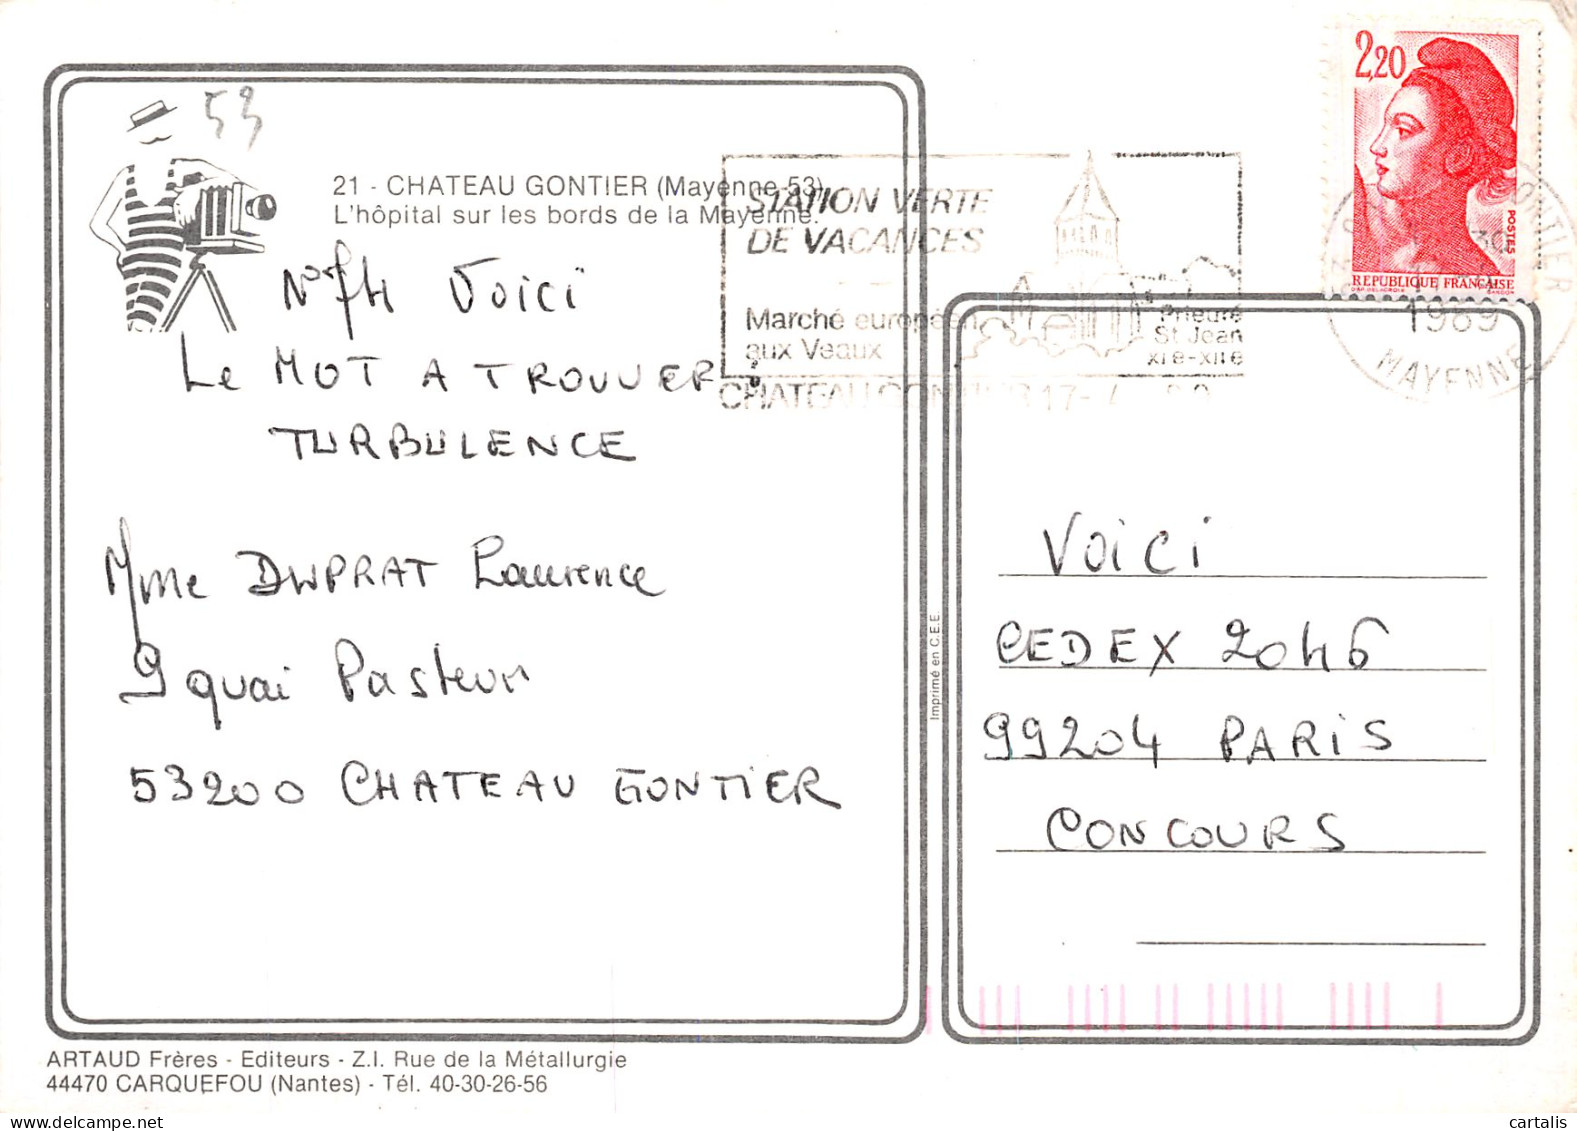 53
21 - CHATEAU GONTIER (Mayenne-53)
L'hôpital sur les bords de la Mayenne.
N°74 Voici
Le MOT A TROUVER :
TURBULENCE
Mme DUPRAT Laurence
9 quai Pasteur
53200 CHATEAU GONTIER
ARTAUD Frères - Editeurs - Z.I. Rue de la Métallurgie
44470 CARQUEFOU (Nantes) - Tél. 40-30-26-56
Imprimé en C.E.E.
STATION VERTE
DE VACANCES
Marché européen
aux Veaux
Prieuré
St Jean
XIe-XIIe
CHATEAU GONTIER 17-4
2,20
POSTES
REPUBLIQUE FRANÇAISE
1989
MAYENNE
Voici
CEDEX 2046
99204 PARIS
CONCOURS
cartalis
delcampe.net